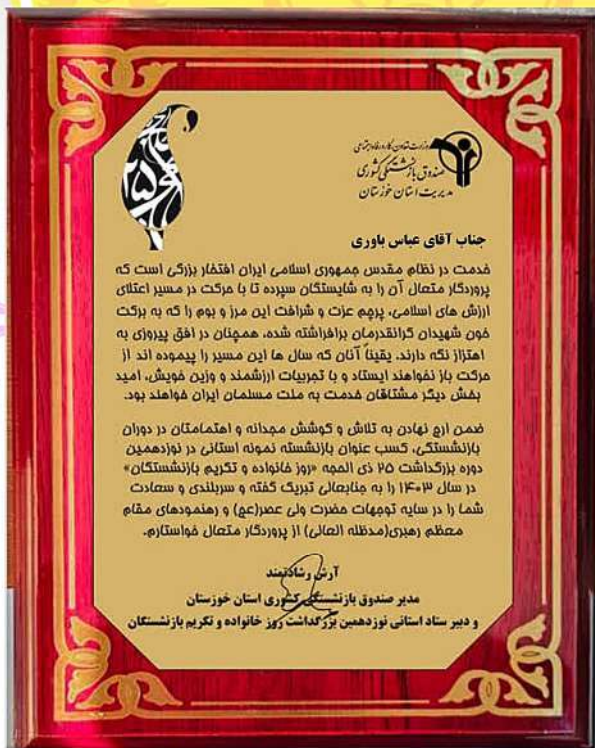 وزارت تعاون، کار و رفاه اجتماعی
صندوق بازنشستگی کشوری
مدیریت استان خوزستان
۲۵
جناب آقای عباس یاوری
خدمت در نظام مقدس جمهوری اسلامی ایران افتخار بزرگی است که
پروردگار متعال آن را به شایستگان سپرده تا با حرکت در مسیر اعتلای
ارزش های اسلامی، پرچم عزت و شرافت این مرز و بوم را که به برکت
خون شهیدان گرانقدرمان برافراشته شده، همچنان در افق پیروزی به
اهتزاز نگه دارند. یقیناً آنان که سال ها این مسیر را پیموده اند از
حرکت باز نخواهند ایستاد و با تجربیات ارزشمند و وزین خویش، امید
بخش دیگر مشتاقان خدمت به ملت مسلمان ایران خواهند بود.
ضمن ارج نهادن به تلاش و کوشش مجدانه و اهتمامتان در دوران
بازنشستگی، کسب عنوان بازنشسته نمونه استانی در نوزدهمین
دوره بزرگداشت ۲۵ ذی الحجه «روز خانواده و تکریم بازنشستگان»
در سال ۱۴۰۳ را به جنابعالی تبریک گفته و سربلندی و سعادت
شما را در سایه توجهات حضرت ولی عصر(عج) و رهنمودهای مقام
معظم رهبری(مدظله العالی) از پروردگار متعال خواستارم.
آرش رشادتمند
مدیر صندوق بازنشستگی کشوری استان خوزستان
و دبیر ستاد استانی نوزدهمین بزرگداشت روز خانواده و تکریم بازنشستگان